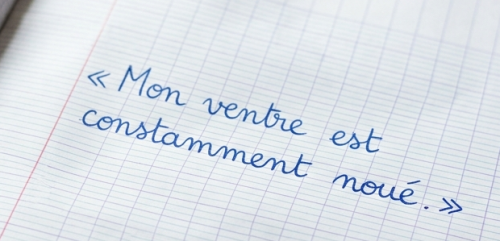 « Mon ventre est
constamment noué. »